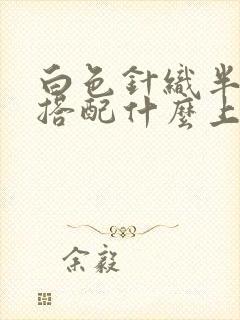 白色針織半
搭配什麼上
余毅